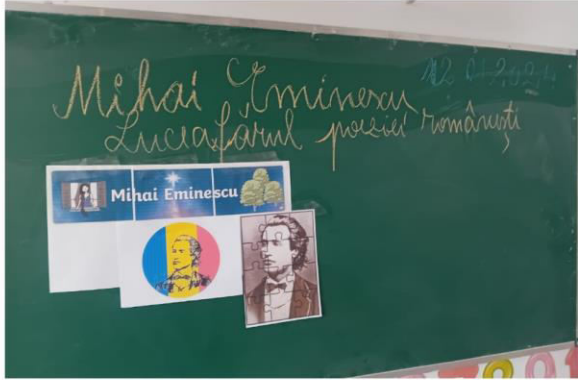 Mihai Eminescu
Luceafărul poeziei românești
Mihai Eminescu